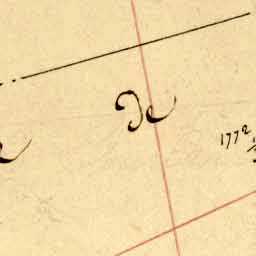 De
1772